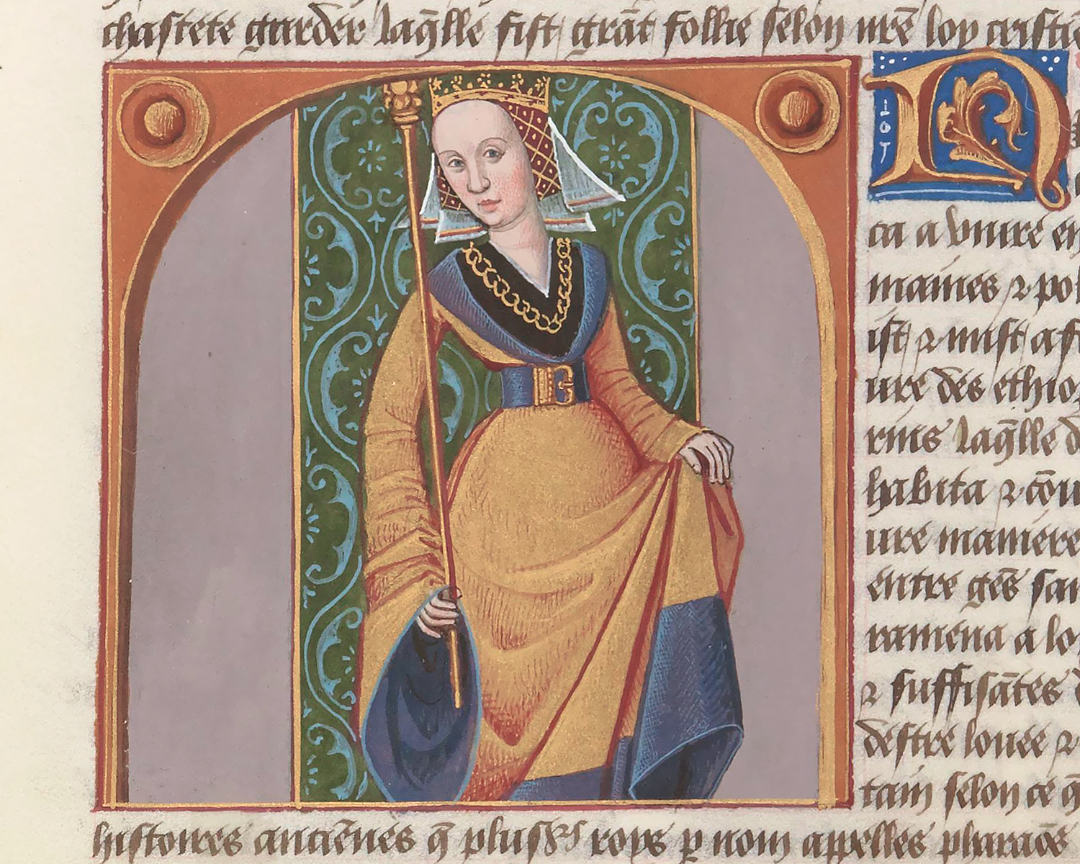 chastete garder laq̄lle fist grāt follie selon ure loy cristie
N
ca a viure en
maines ⁊ pol
ist ⁊ mist a fi
ure des ethio
rins laq̄lle d
habita ⁊ cōu
ure maniere
entre gēs sau
ramena a lo
⁊ suffisātes d
destre louee ⁊
tain selon ce q̄
histoires anciēnes q̄ plus⁊s roys p nom appelles pharaōs